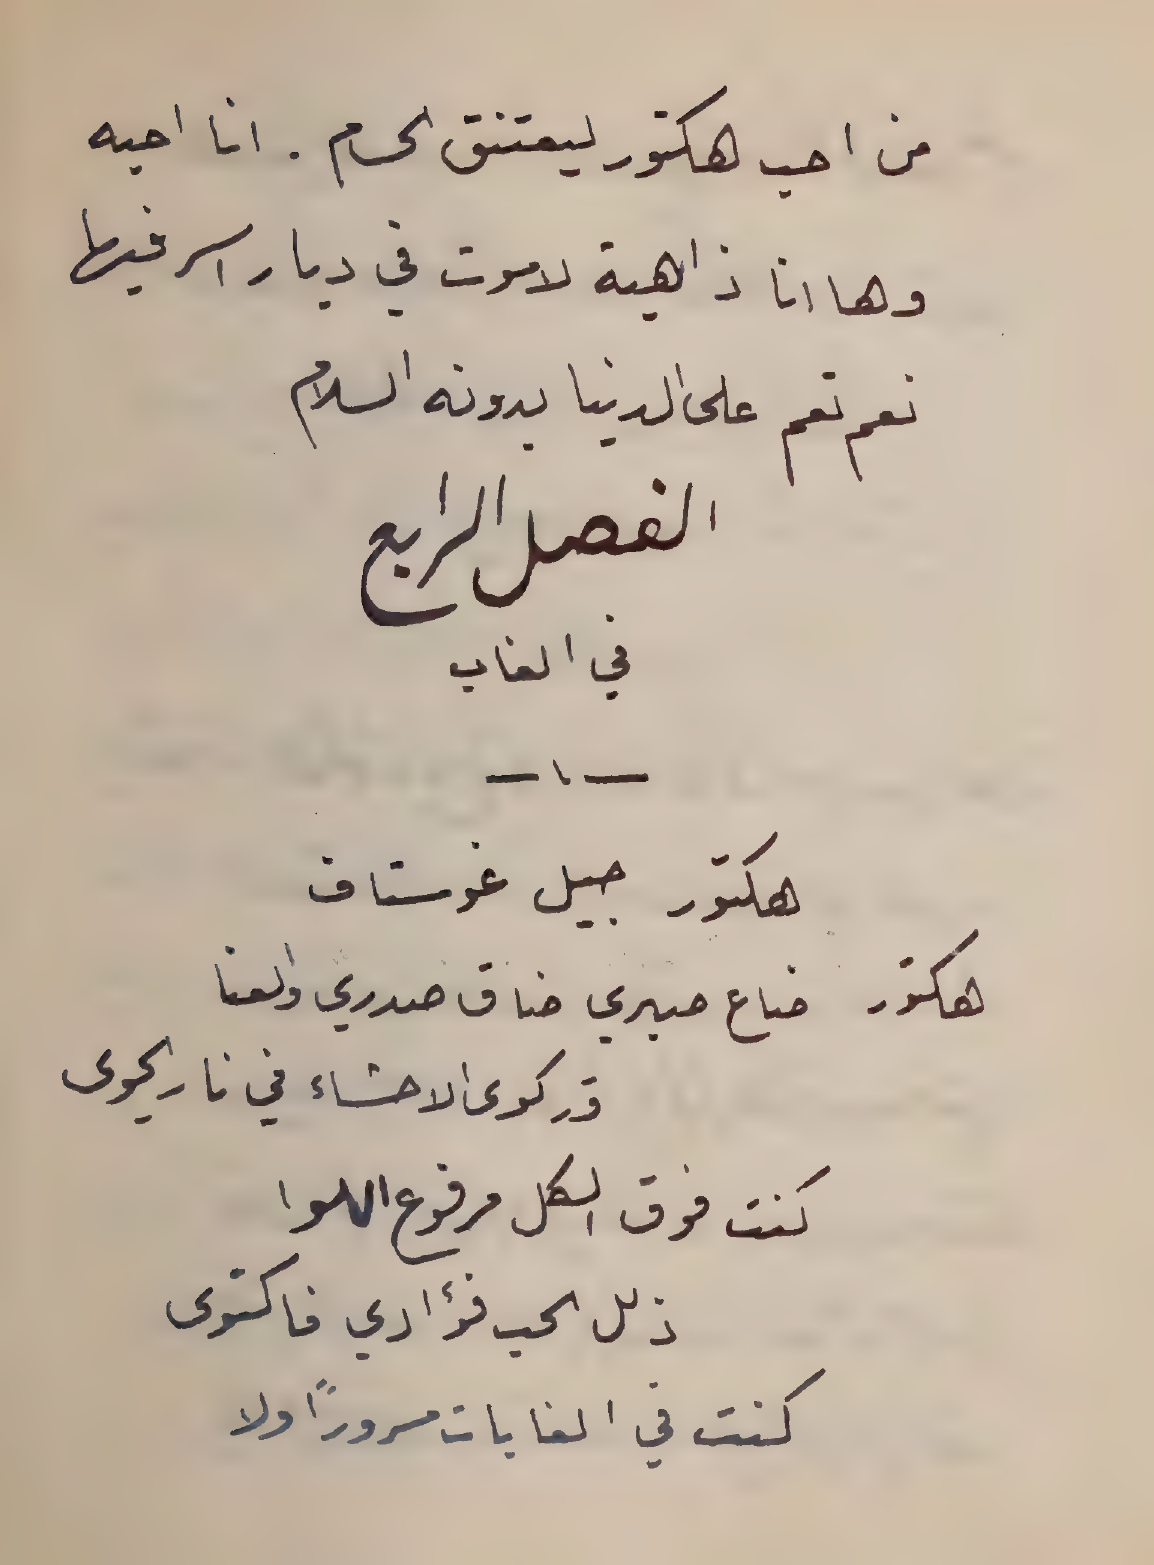 من احب هكتور ليعتنق الحسام . انا احبه
وها انا ذاهبة لاموت في ديار اسر فيها
نعم نعم على الدنيا بدونه السلام
الفصل الرابع
في الغاب
— ١ —
هكتور جيل غوستاف
هكتور ضاع صبري ضاق صدري والعنا
قد كوى الاحشاء في نار الجوى
كنت فوق الكل مرفوع اللوا
ذلل الحب فؤادي فاكتوى
كنت في الغابات مسروراً ولا